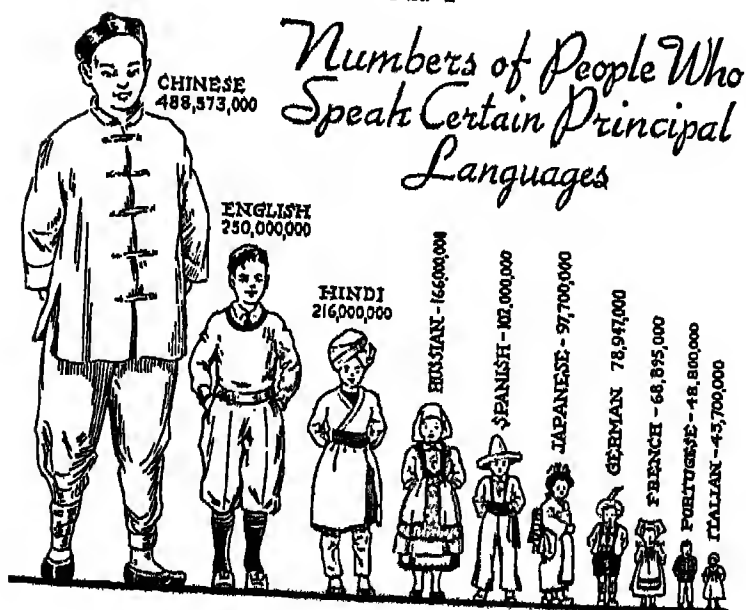 Numbers of People Who
Speak Certain Principal
Languages
CHINESE
488,573,000
ENGLISH
250,000,000
HINDI
216,000,000
RUSSIAN - 166,000,000
SPANISH - 102,000,000
JAPANESE - 97,700,000
GERMAN 78,947,000
FRENCH - 68,895,000
PORTUGESE - 48,800,000
ITALIAN - 43,700,000